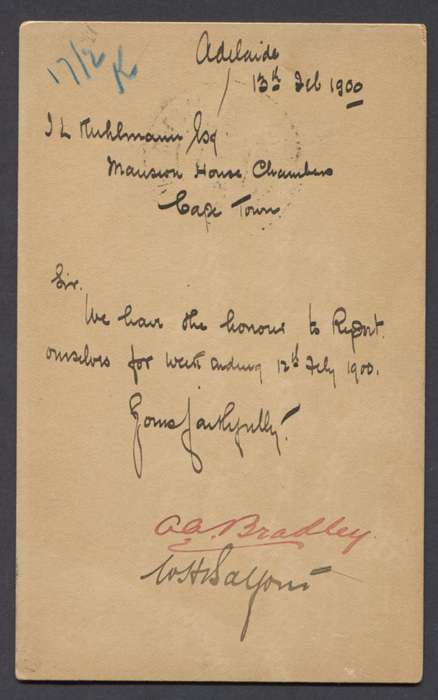 17/2 K
Adelaide
13th Feb 1900
J L Kuhlmann Esq
Mansion House Chambers
Cape Town
Sir.
We have the honour to Report
ourselves for week ending 12th Feby 1900.
Yours faithfully.
Bradley.